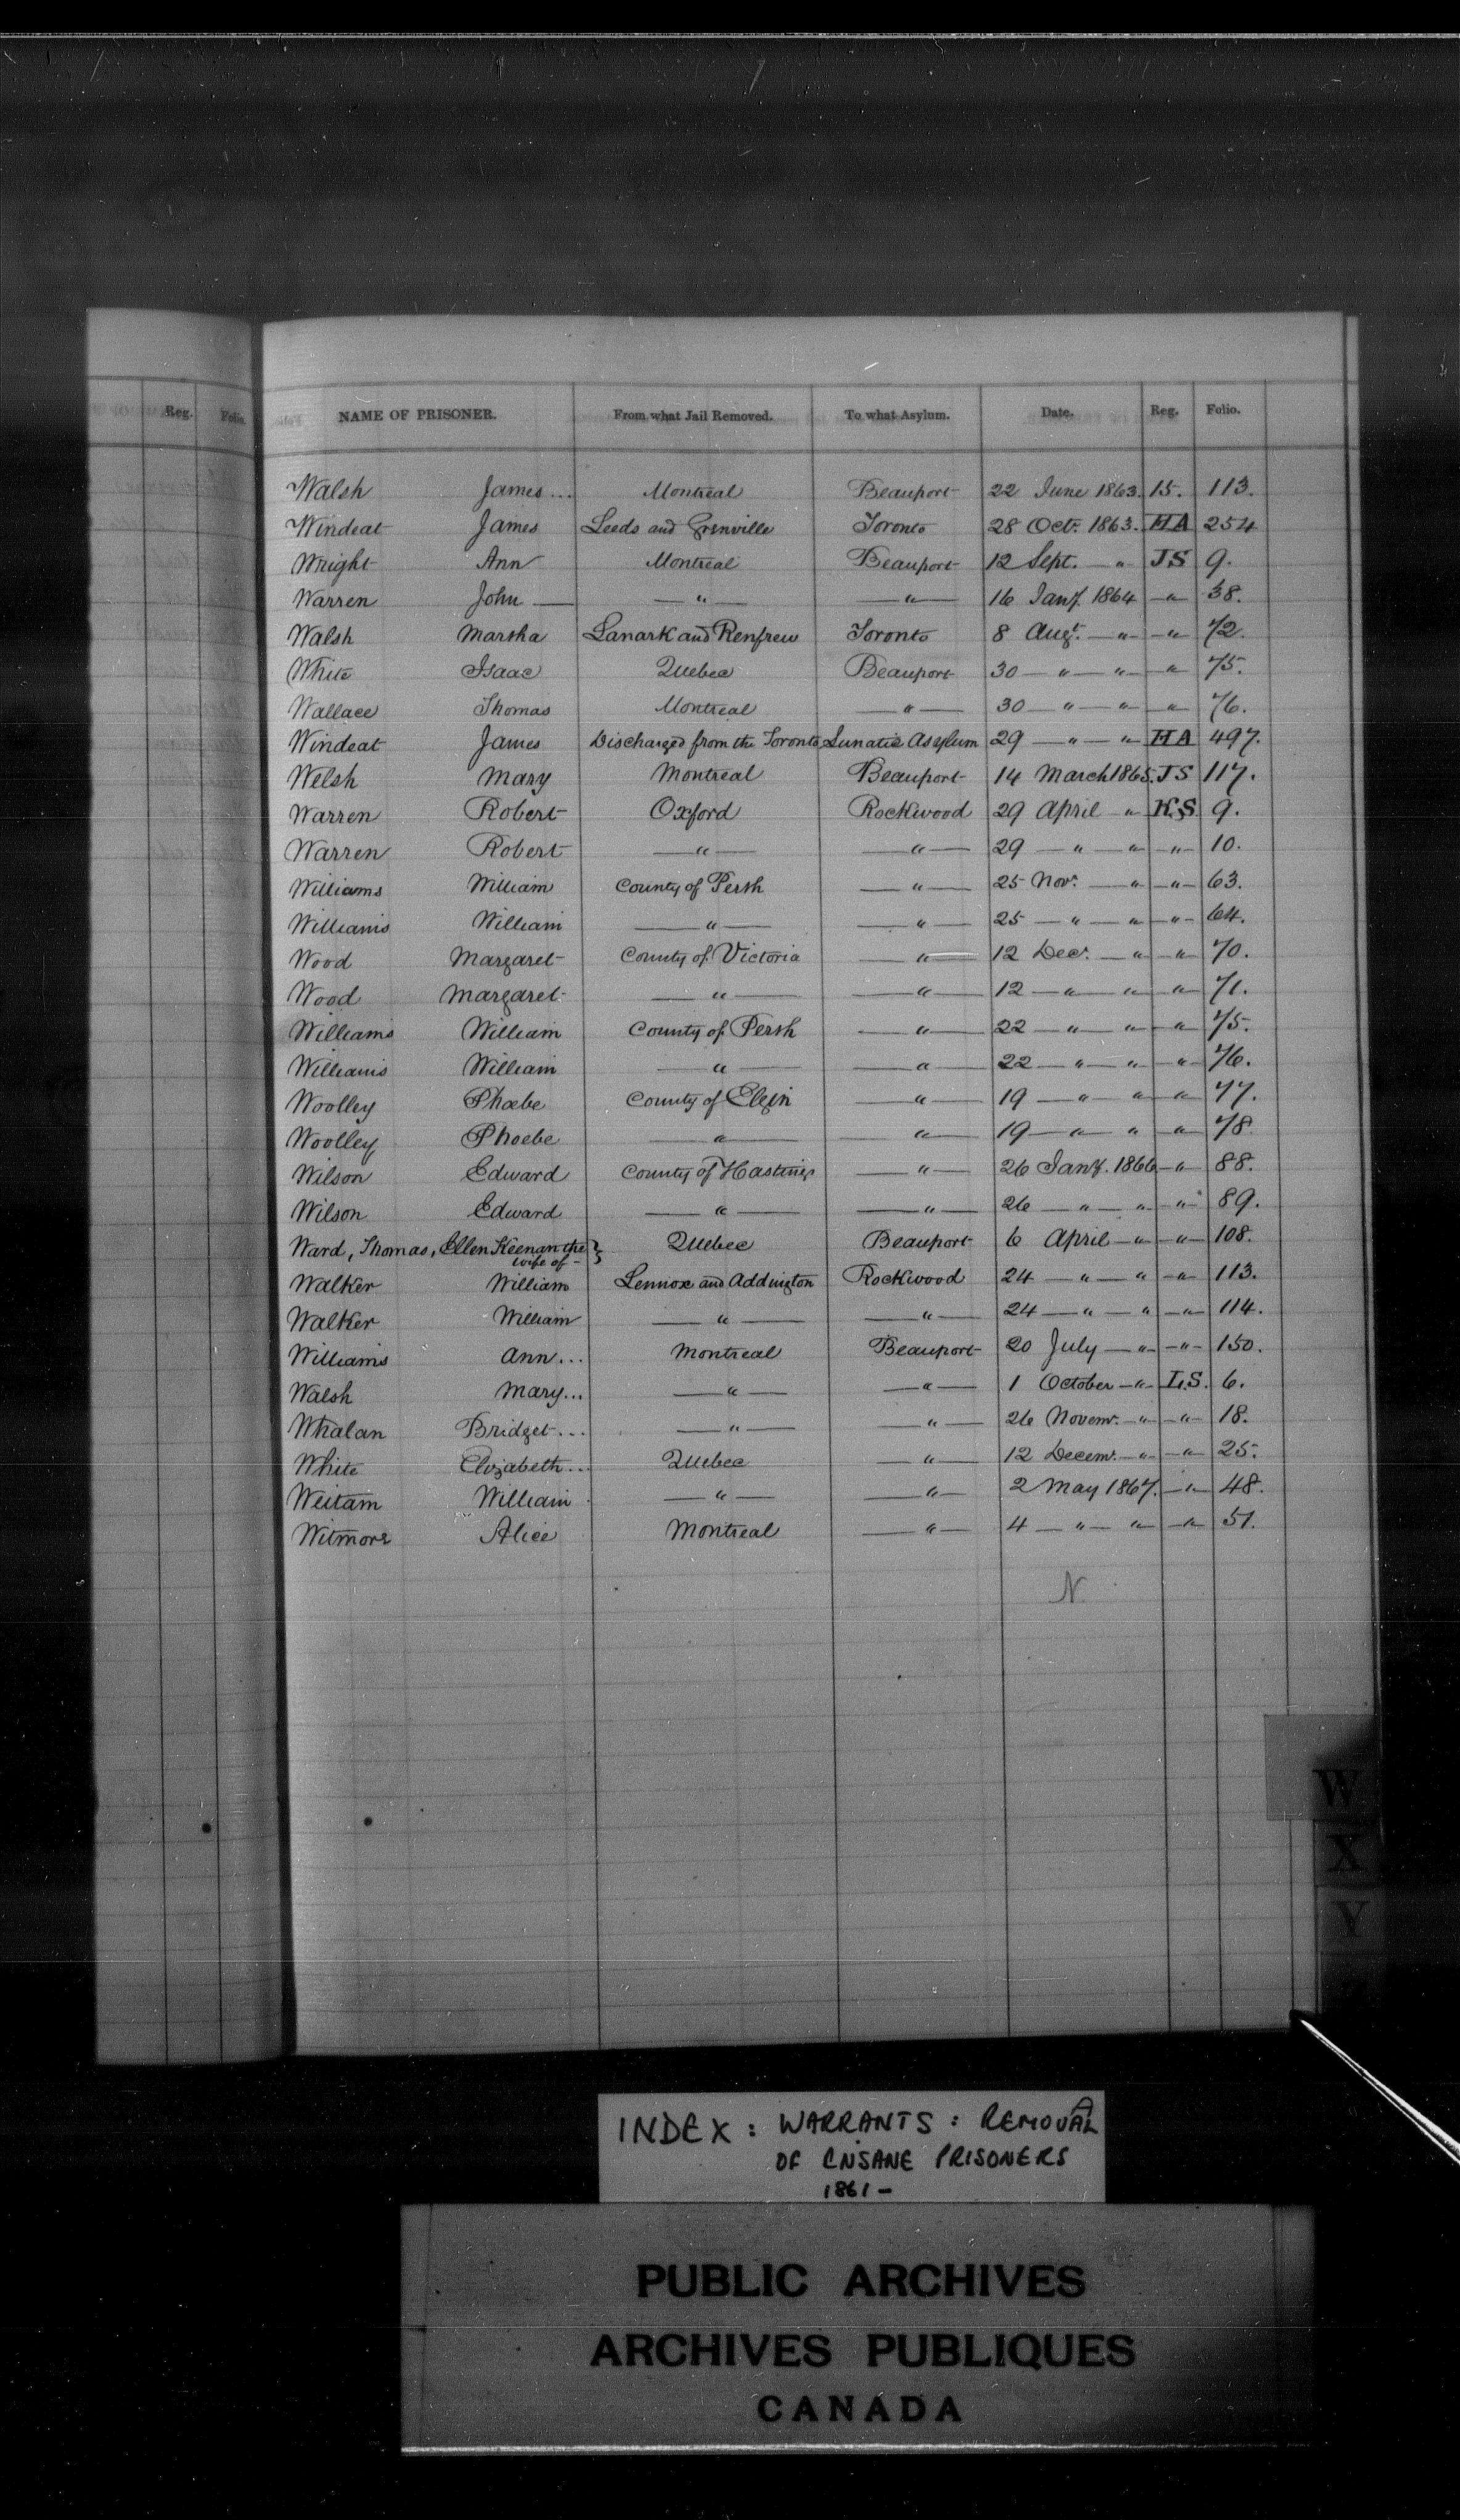 Reg. Folio.
NAME OF PRISONER. From what Jail Removed. To what Asylum. Date. Reg. Folio.
Walsh James ... Montreal Beauport 22 June 1863. 15. 113.
Windeat James Leeds and Grenville Toronto 28 Oct. 1863. HA 254
Wright Ann Montreal Beauport 12 Sept. — " JS 9.
Warren John — — " — — " — 16 Jany. 1864 — " 38.
Walsh Martha Lanark and Renfrew Toronto 8 Augt. — " — " 72.
White Isaac Quebec Beauport 30 — " — " — " 75.
Wallace Thomas Montreal — " — 30 — " — " — " 76.
Windeat James Discharged from the Toronto Lunatic Asylum 29 — " — " HA 497.
Welsh Mary Montreal Beauport 14 March 1865. JS 117.
Warren Robert Oxford Rockwood 29 April — " K.S. 9.
Warren Robert — " — — " — 29 — " — " — " — 10.
Williams William County of Perth — " — 25 Nov. — " — " — 63.
Williams William — " — — " — 25 — " — " — " — 64.
Wood Margaret County of Victoria — " — 12 Dec. — " — " 70.
Wood Margaret — " — — " — 12 — " — " — " 71.
Williams William County of Perth — " — 22 — " — " — " 75.
Williams William — " — — " — 22 — " — " — " 76.
Woolley Phœbe County of Elgin — " — 19 — " — " — " 77.
Woolley Phoebe — " — — " — 19 — " — " — " 78.
Wilson Edward County of Hastings — " — 26 Jany. 1866 — " 88.
Wilson Edward — " — — " — 26 — " — " — " 89.
Ward, Thomas, Ellen Keenan the } Quebec Beauport 6 April — " — " — 108.
wife of —
Walker William Lennox and Addington Rockwood 24 — " — " — " 113.
Walker William — " — — " — 24 — " — " — " — 114.
Williams Ann ... Montreal Beauport 20 July — " — " — 150.
Walsh Mary ... — " — — " — 1 October — " L.S. 6.
Whalan Bridget ... — " — — " — 26 Novemr. — " — " — 18.
White Elizabeth ... Quebec — " — 12 Decemr. — " — " 25.
Weitam William — " — — " — 2 May 1867. — " 48.
Witmore Alice Montreal — " — 4 — " — " — " 51.
N
W
X
Y
INDEX : WARRANTS : REMOVAL
OF INSANE PRISONERS
1861 —
PUBLIC ARCHIVES
ARCHIVES PUBLIQUES
CANADA